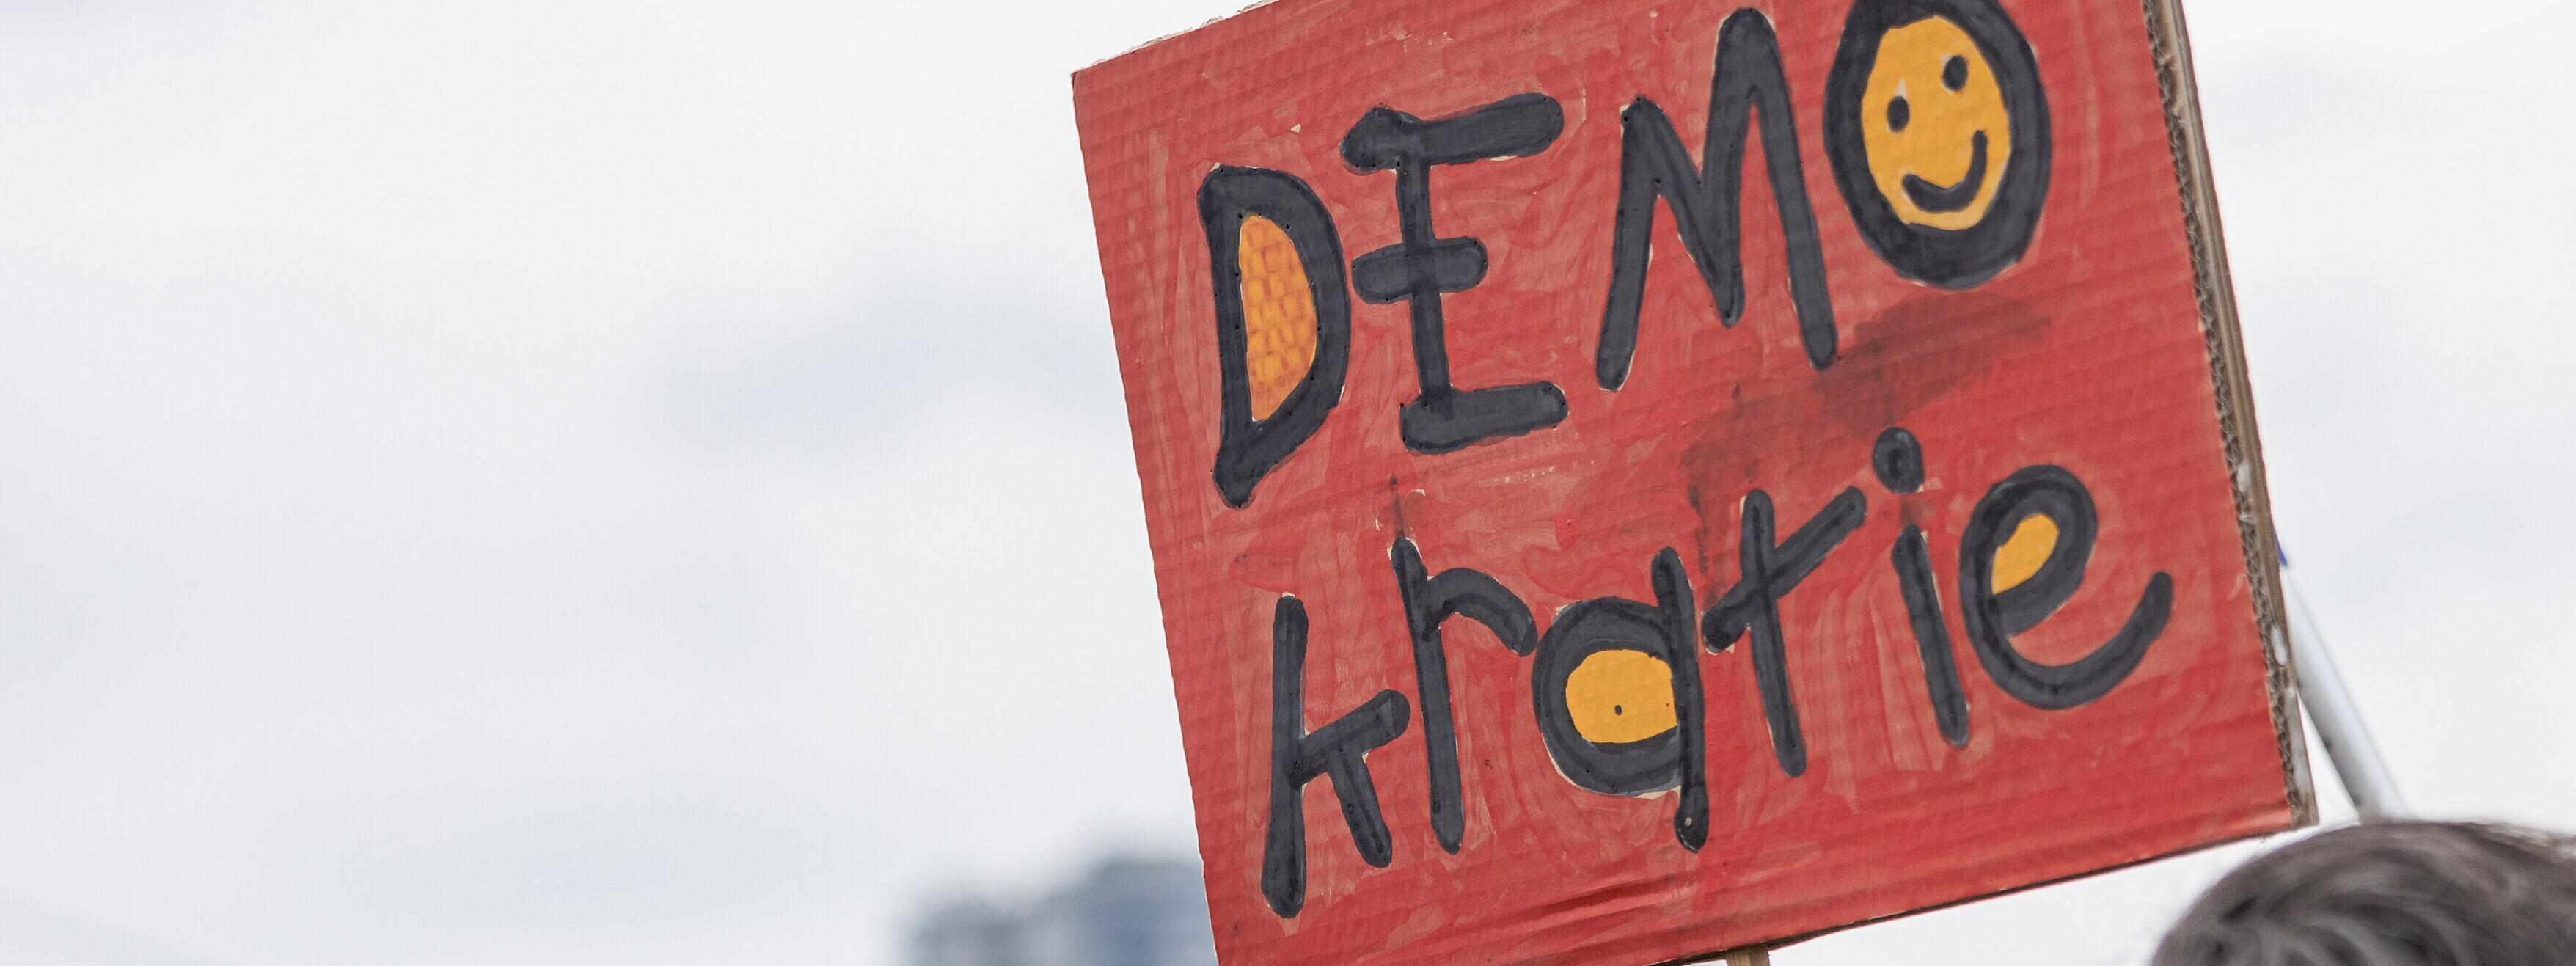 DEMO
kratie